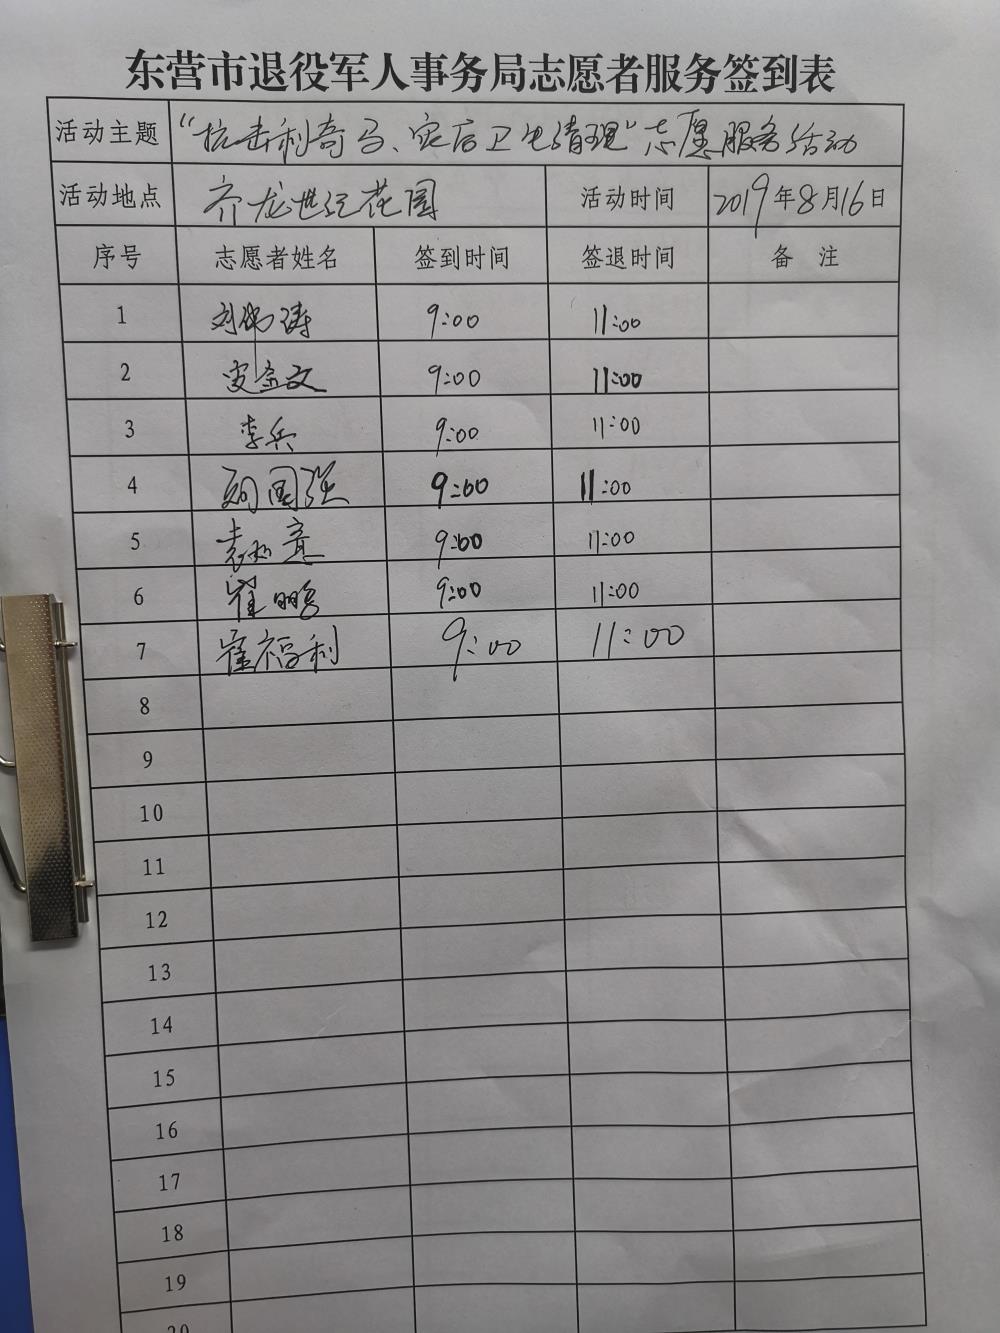 东营市退役军人事务局志愿者服务签到表
活动主题 "抗击利奇马、灾后卫生清理"志愿服务活动
活动地点 齐龙世纪花园 活动时间 2019年8月16日
序号 志愿者姓名 签到时间 签退时间 备 注
1 刘 涛 9:00 11:00
2 安金文 9:00 11:00
3 李兵 9:00 11:00
4 国强 9:00 11:00
5 袁 9:00 11:00
6 崔鹏 9:00 11:00
7 崔福利 9:00 11:00
8
9
10
11
12
13
14
15
16
17
18
19
20